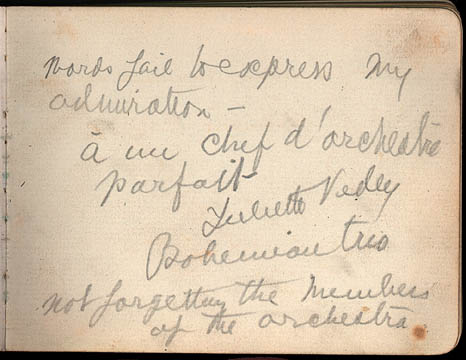 words fail to express my
admiration -
à un chef d'orchestre
parfait
Juliette
Bohemian trio
not forgetting the members
of the orchestra